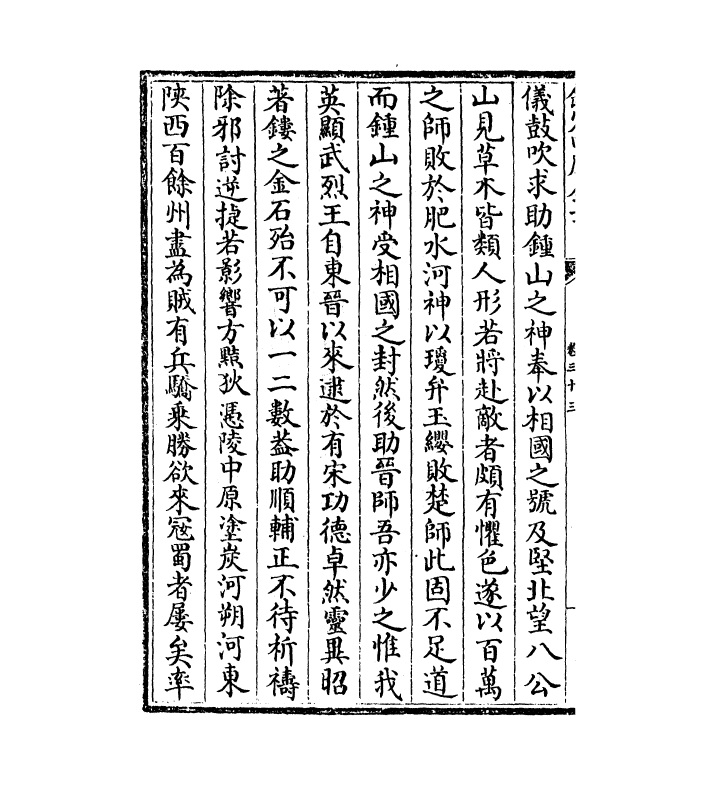 卷三十三
儀鼓吹求助鍾山之神奉以相國之號及堅北望八公
山見草木皆類人形若將赴敵者頗有懼色遂以百萬
之師敗於肥水河神以瓊弁玉纓敗楚師此固不足道
而鍾山之神受相國之封然後助晉師吾亦少之惟我
英顯武烈王自東晉以來逮於有宋功德卓然靈異昭
著鏤之金石殆不可以一二數葢助順輔正不待祈禱
除邪討逆捷若影響方黠狄憑陵中原塗炭河朔河東
陜西百餘州盡為賊有兵驕乗勝欲來寇蜀者屢矣率